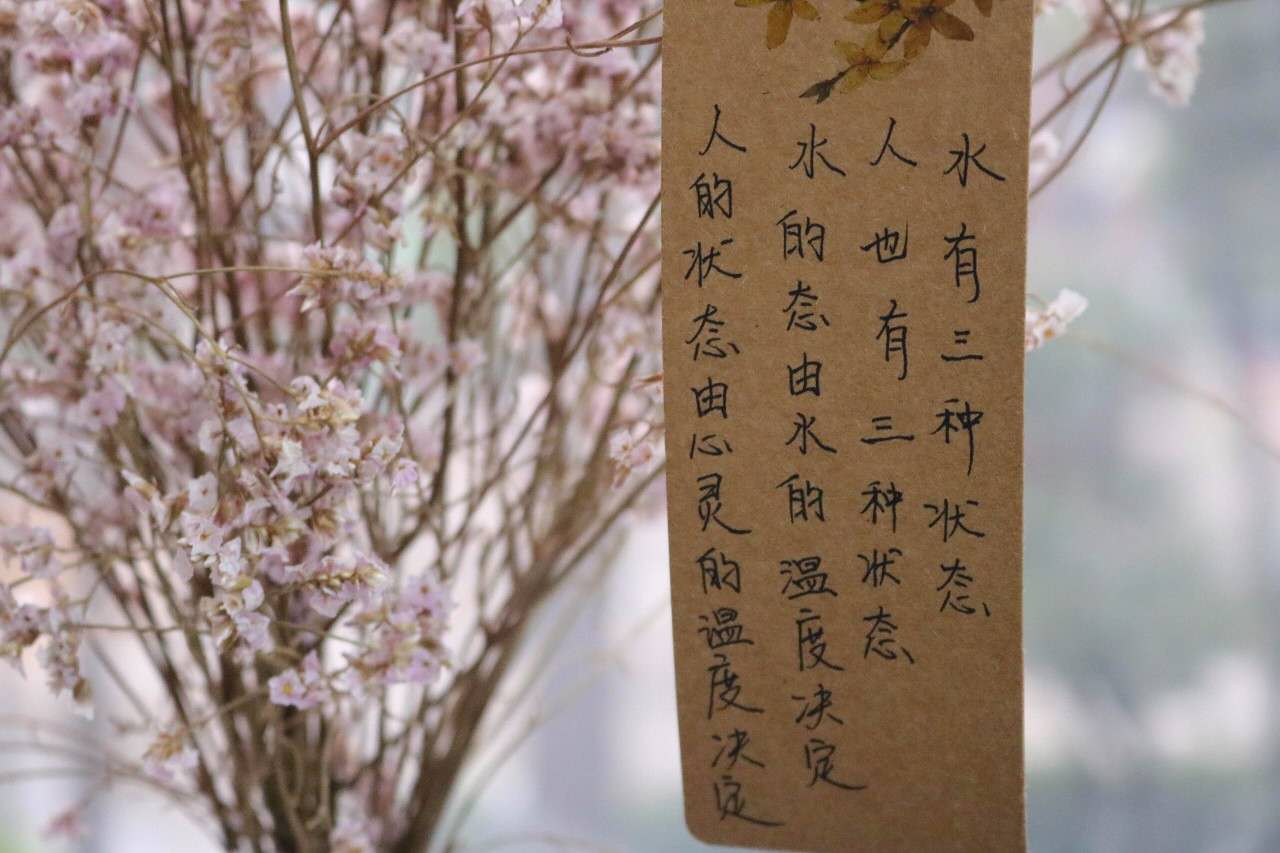 水有三种状态
人也有三种状态
水的态由水的温度决定
人的状态由心灵的温度决定